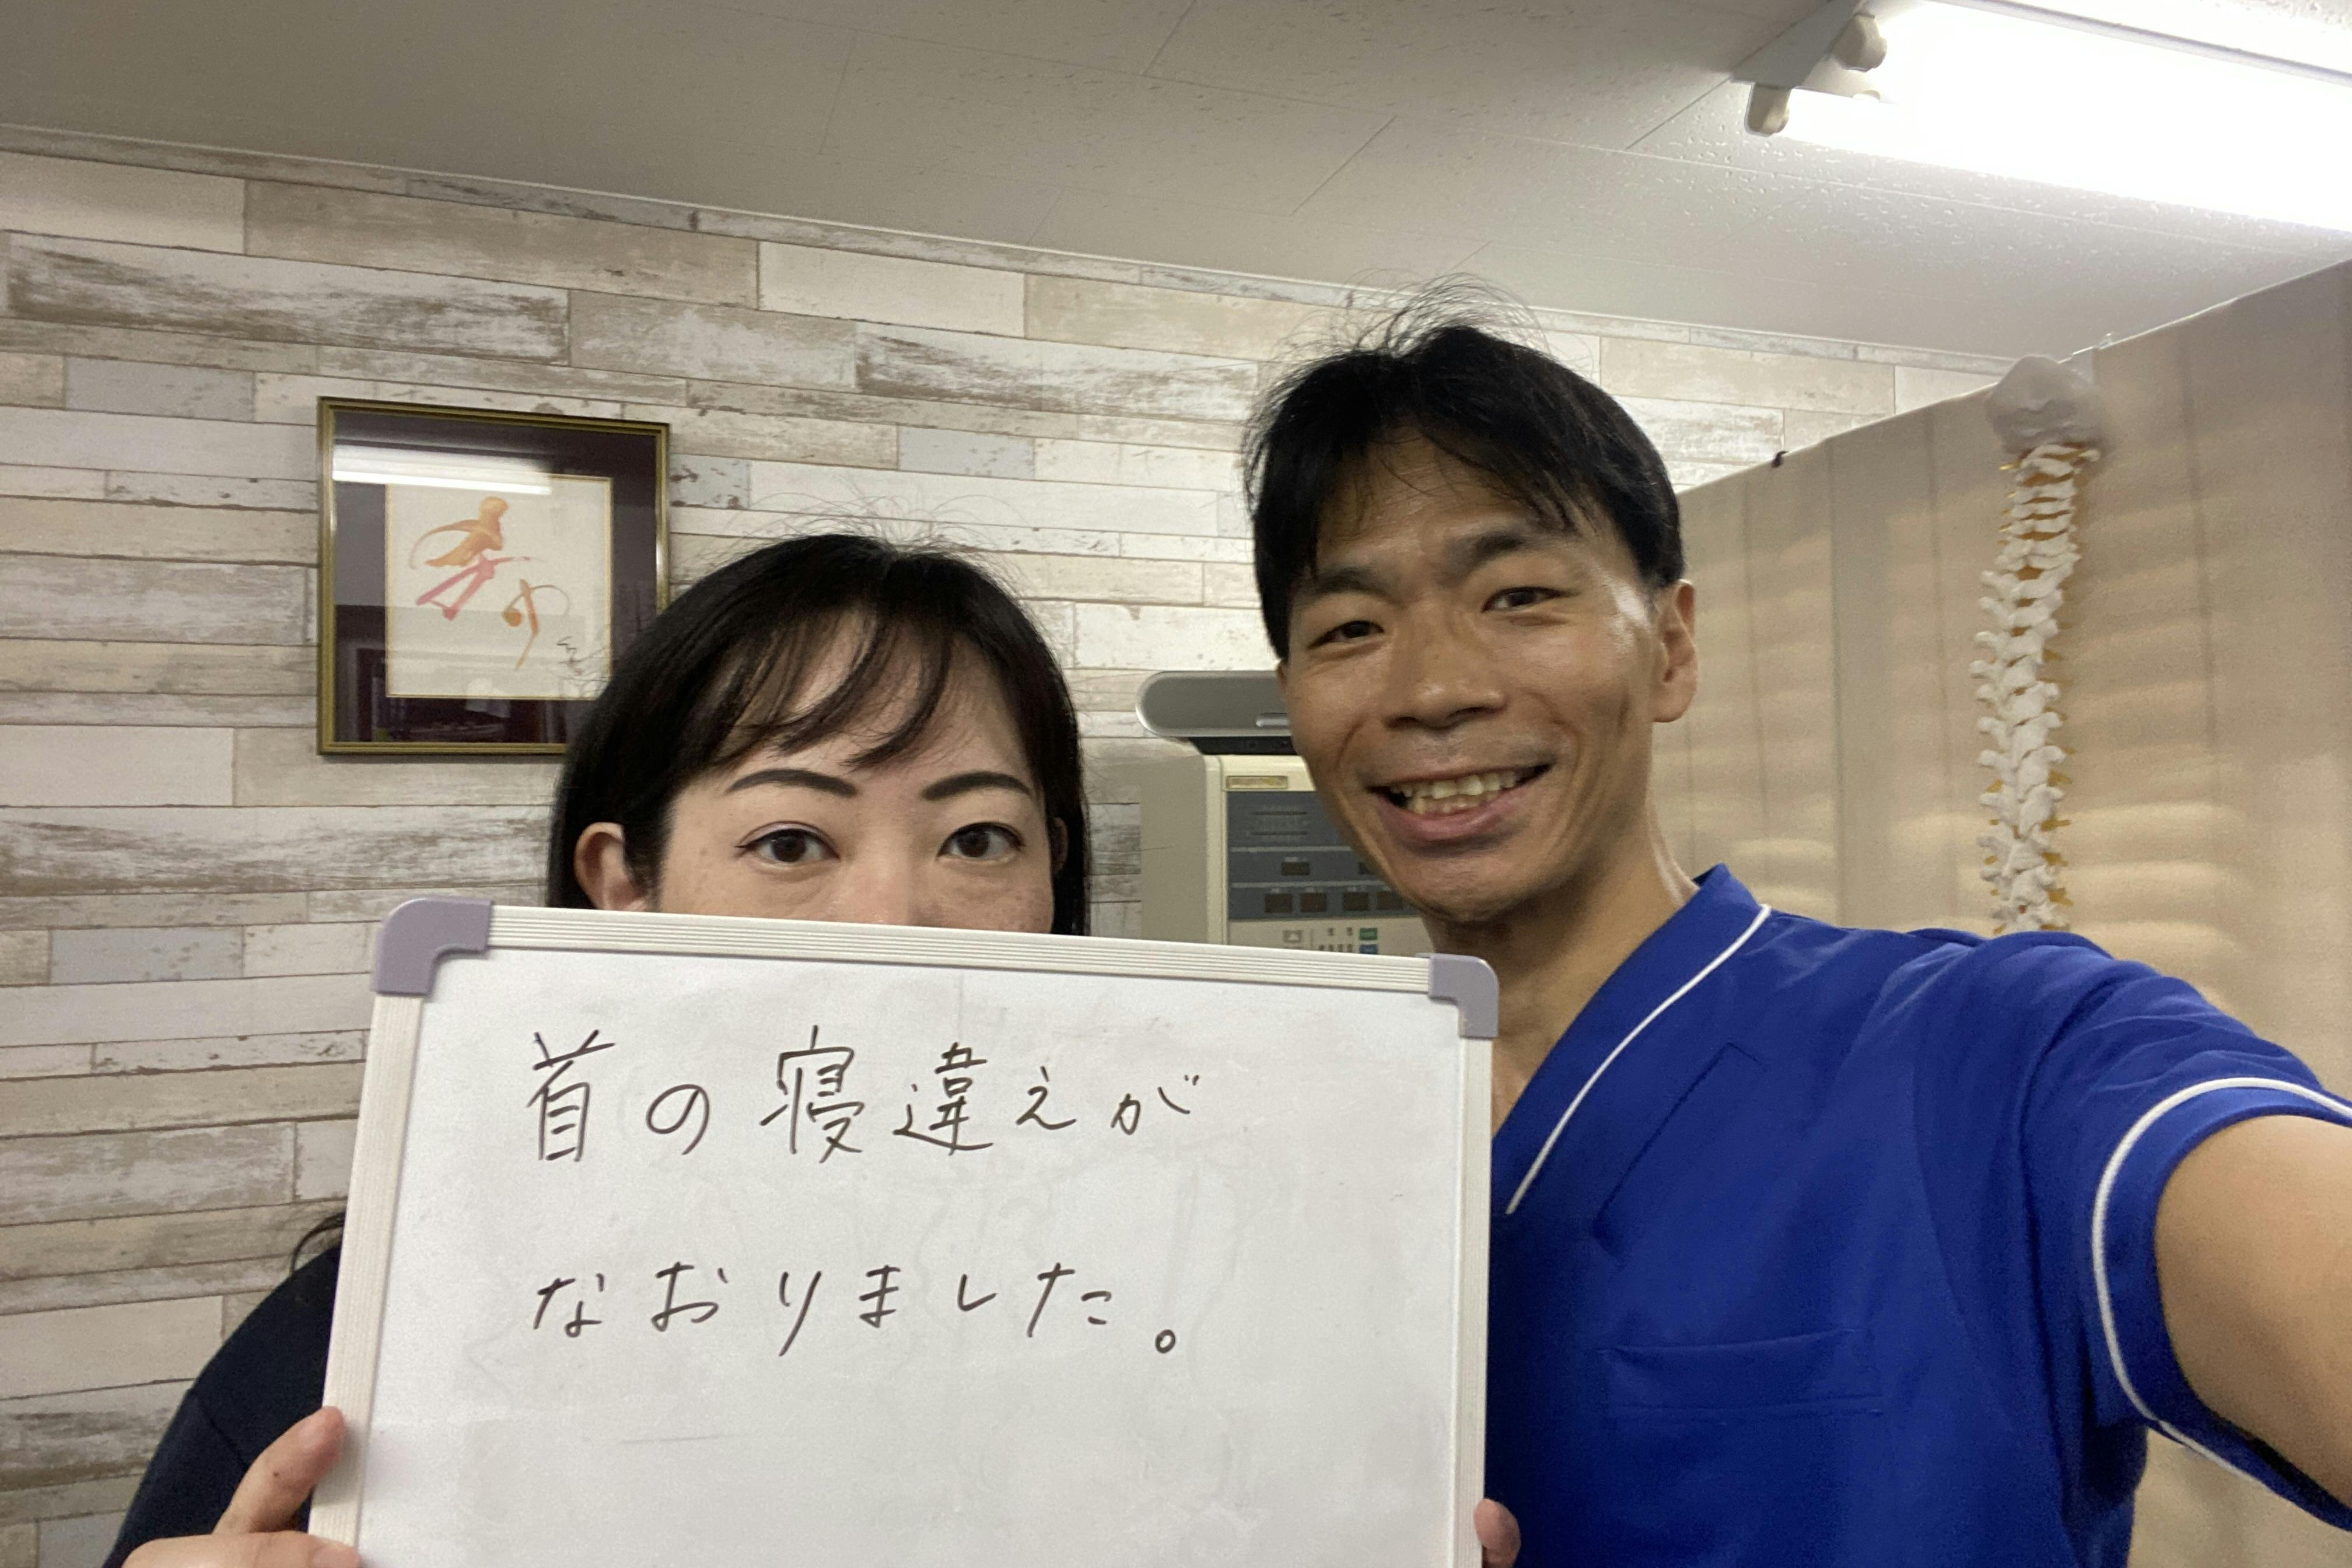 首の寝違えが
なおりました。